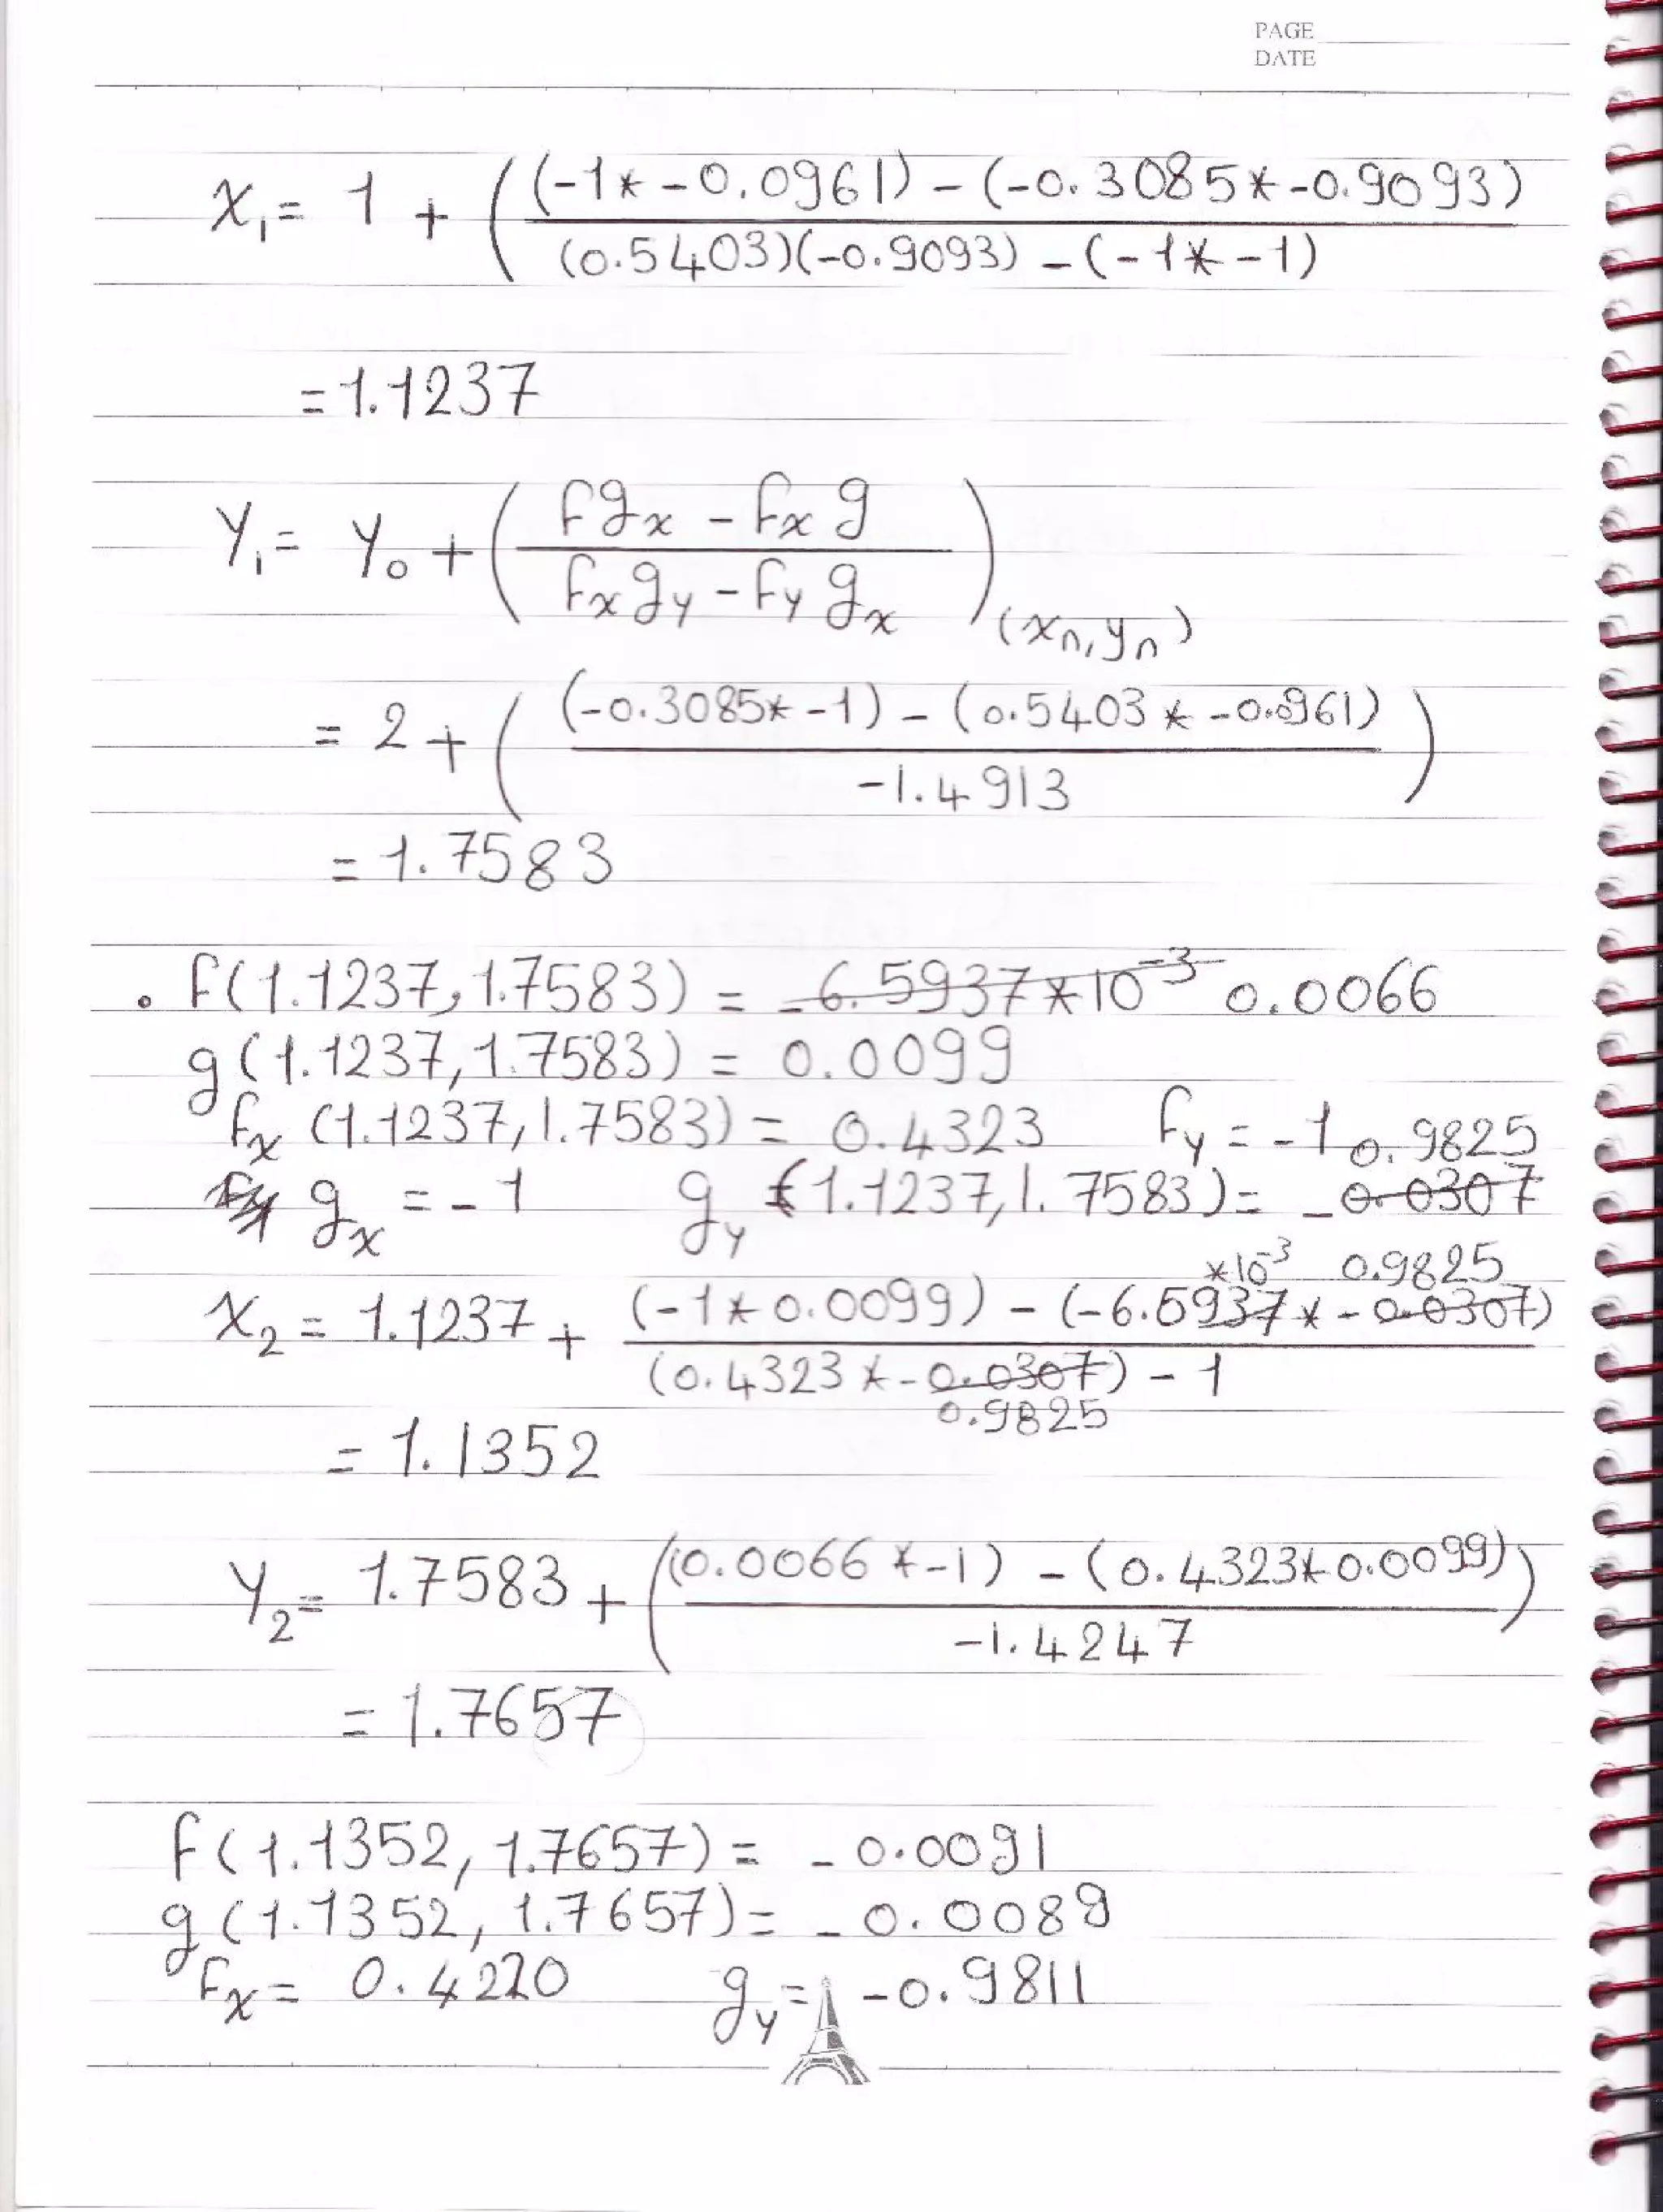 PAGE
DATE
x₁ = 1 + ( ((-1*-0.0961) - (-0.3085*-0.9093)) / ((0.5403)(-0.9093) - (-1*-1))
= 1.1237
y₁ = y₀ + ( (f gₓ - fₓ g) / (fₓ g_y - f_y gₓ) )(xₙ, yₙ)
= 2 + ( ((-0.3085*-1) - (0.5403*-0.0961)) / -1.4913 )
= 1.7583
• f(1.1237, 1.7583) = -6.5937*10⁻³ 0.0066
g(1.1237, 1.7583) = 0.0099
fₓ (1.1237, 1.7583) = 0.4323 f_y = -1
0.9825
gₓ = -1 g_y (1.1237, 1.7583) = -0.0307
*10⁻³ 0.9825
x₂ = 1.1237 + ((-1*0.0099) - (-6.5937*-0.0307)) / ((0.4323*-0.0307) - 1)
0.9825
= 1.1352
y₂ = 1.7583 + ( ((0.0066*-1) - (0.4323*0.0099)) / -1.4247 )
= 1.7657
f(1.1352, 1.7657) = -0.0091
g(1.1352, 1.7657) = -0.0089
fₓ = 0.4220 g_y = -0.9811